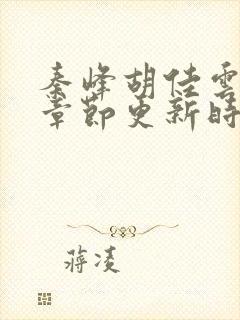 秦峰胡佳雲
章節更新時
蔣凌